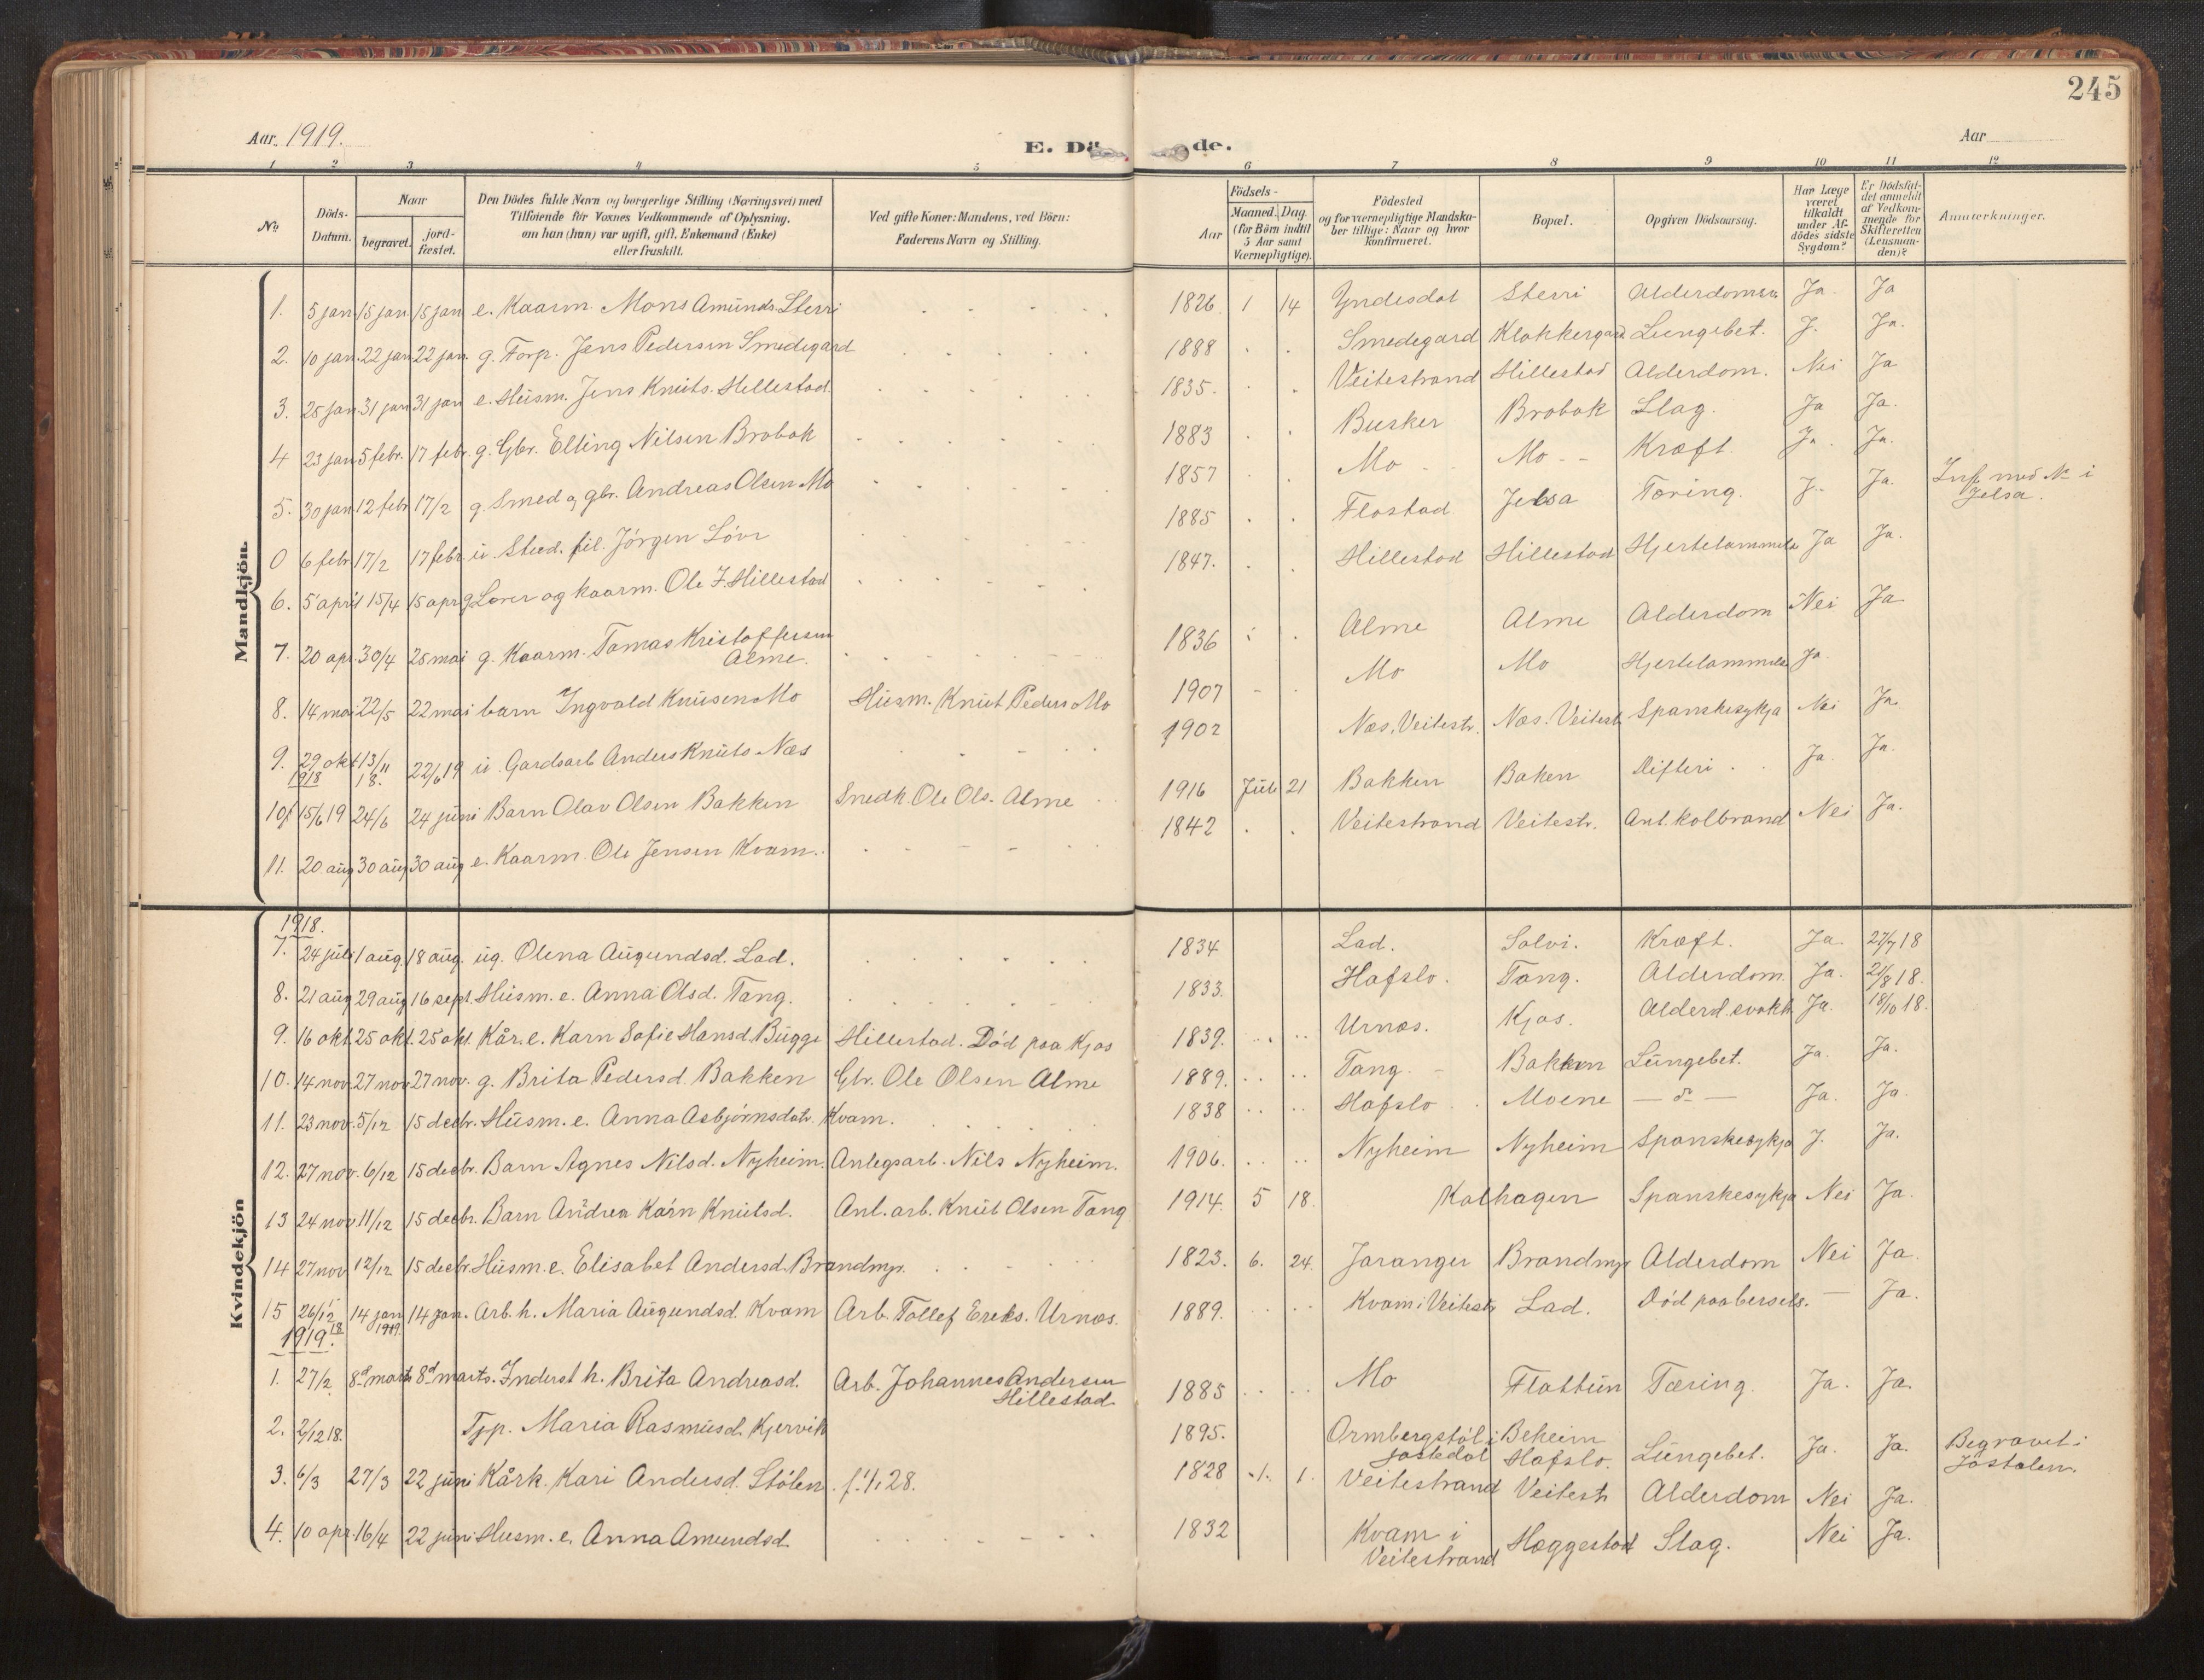 245
Aar 1919.
E. Dö de.
Aar
1 2 3 4 5 6 7 8 9 10 11 12
No
Döds-Datum.
Naar
begravet.
jord-fæstet.
Den Dödes fulde Navn og borgerlige Stilling (Næringsvei) med
Tilföiende för Voxnes Vedkommende af Oplysning,
om han (hun) var ugift, gift, Enkemand (Enke)
eller fraskilt.
Ved gifte Koner: Mandens, ved Börn:
Faderens Navn og Stilling.
Födsels-
Aar
Maaned. Dag.
(for Börn indtil
5 Aar samt
Værnepligtige).
Födested
og for værnepligtige Mandska-
ber tillige: Naar og hvor
konfirmeret.
Bopæl.
Opgiven Dödsaarsag.
Har Læge
været
tilkaldt
under Af-
dödes sidste
Sygdom?
Er Dödsfal-
det anmeldt
af Vedkom-
mende for
Skifteretten
(Lensman-
den)?
Anmærkninger.
Mandkjön.
1. 5 jan 15 jan. 15 jan e. Kaarm. Mons Amunds. Sterri 1826 1 14 Yndesdal Sterri Alderdomssv. Ja. Ja
2. 10 jan. 22 jan 22 jan. g. Forp. Jens Pedersen Smedegard 1888 Smedegard Klokkergard Lungebet. J. Ja.
3. 25 jan 31 jan 31 jan e. Husm. Jens Knuts. Hillestad. 1835. Veitestrand Hillestad Alderdom. Nei Ja
4 23 jan 5 febr. 17 febr. g. Gbr. Elling Nilsen Brobak 1883 Busker Brobak Slag. Ja Ja.
5. 30 jan 12 febr 17/2 g. Smed og gbr. Andreas Olsen Mo 1857 Mo Mo Kræft. Ja. Ja.
0 6 febr 17/2 17 febr. u. Stud. fil. Jörgen Lövr 1885 Flostad Jelsa Tæring. J. Ja. Inf. med No i Jelsa.
6. 5 april 15/4 15 apr g. Lærer og kaarm. Ole J. Hillestad 1847. Hillestad Hillestad Hjertelammelse Ja Ja.
7. 20 apr. 30/4 25 mai g. Kaarm. Tomas Kristoffersen Alme. 1836 Alme Alme Alderdom Nei Ja
8. 14 mai 22/5 22 mai barn Ingvald Knusen Mo Husm. Knut Peders Mo 1907 Mo Mo Hjertelammelse Ja.
9. 29 okt 1918 13/11 18. 22/6 19 u. Gardsarb Anders Knuts. Næs 1902 Næs. Veitestr. Næs. Veitest. Spanskesykja Nei Ja
10. 15/6 19 24/6 24 juni Barn Olav Olsen Bakken Snedk. Ole Ols. Alme 1916 Juli 21 Bakken Baken Difteri Ja. Ja.
11. 20 aug 30 aug 30 aug e. Kaarm. Ole Jensen Kvam. 1842 Veitestrand Veitestr. Ant. kolbrand Nei Ja.
Kvindekjön
1918.
7. 24 juli 1 aug. 18 aug. ug. Olena Augundsd. Lad. 1834 Lad. Solvi. Kræft. Ja. 27/7 18
8. 21 aug 29 aug 16 sept. Husm. e. Anna Olsd. Tang. 1833. Hafslo. Tang. Alderdom. Ja. 21/8 18.
9. 16 okt. 25 okt. 25 okt. Kår. e. Karn Sofie Hansd. Bugge Hillestad. Död paa Kjos 1839. Urnæs. Kjos. Alderd. svakh. Ja. 18/10 18.
10. 14 nov. 27 nov 27 nov. g. Brita Pedersd. Bakken Gbr. Ole Olsen Alme 1889. Tang. Bakken Lungebet. Ja. Ja.
11. 23 nov. 5/12 15 decbr. Husm. e. Anna Asbjörnsdatr. Kvam. 1838 Hafslo Moene — do — Ja. Ja.
12. 27 nov. 6/12 15 decbr. Barn Agnes Nilsd. Nyheim. Anlegsarb. Nils Nyheim. 1906. Nyheim Nyheim Spanskesykja J. Ja.
13 24 nov 11/12 15 decbr. Barn Andrea Karn Knutsd. Anl. arb. Knut Olsen Tang 1914. 5 18. Kalhagen Spanskesykja Nei Ja.
14 27 nov 12/12 15 decbr. Husm. e. Elisabet Andersd. Brandmyr. 1823. 6. 24. Jaranger Brandmyr Alderdom Nei Ja.
15 26/12 18 14 jan 1919. 14 jan. Arb. h. Maria Augundsd. Kvam Arb. Tollef Ereks. Urnæs. 1889. Kvam i Veitestr. Lad. Död paa barsels. — Ja.
1919.
1. 27/2 8d marts 8d marts. Inderst h. Brita Andreasd. Arb. Johannes Andersen Hillestad 1885 Mo Flattun Tæring. Ja. Ja.
2. 2/12 18. Tjp. Maria Rasmusd. Kjervik 1895. Ormbergstöl i Jostedal Beheim Hafslo. Lungebet. Ja. Ja. Begravet i Jostalen.
3. 6/3 27/3 22 juni Kårk. Kari Andersd. Stölen f. 1/1 28. 1828 1. 1. Veitestrand Veitestr Alderdom Nei Ja.
4. 10 apr. 16/4 22 juni Husm. e. Anna Amundsd. 1832 Kvam i Veitestrand Hæggestad Slag. Nei Ja.